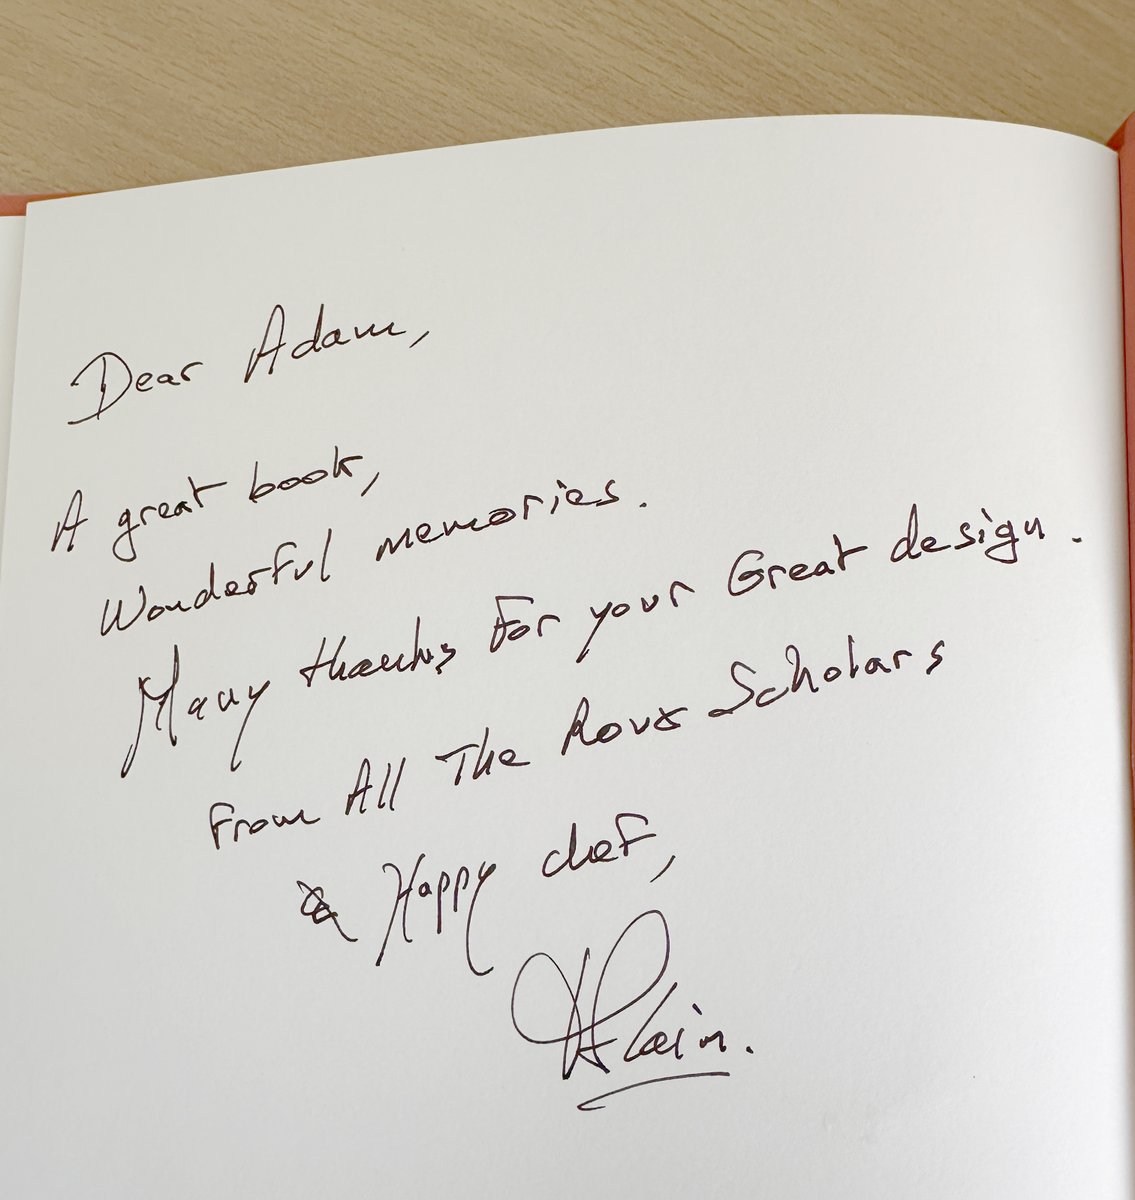 Dear Adam,
A great book,
Wonderful memories.
Many thanks For your Great design.
From All The Roux Scholars
& Happy chef,
Alain.